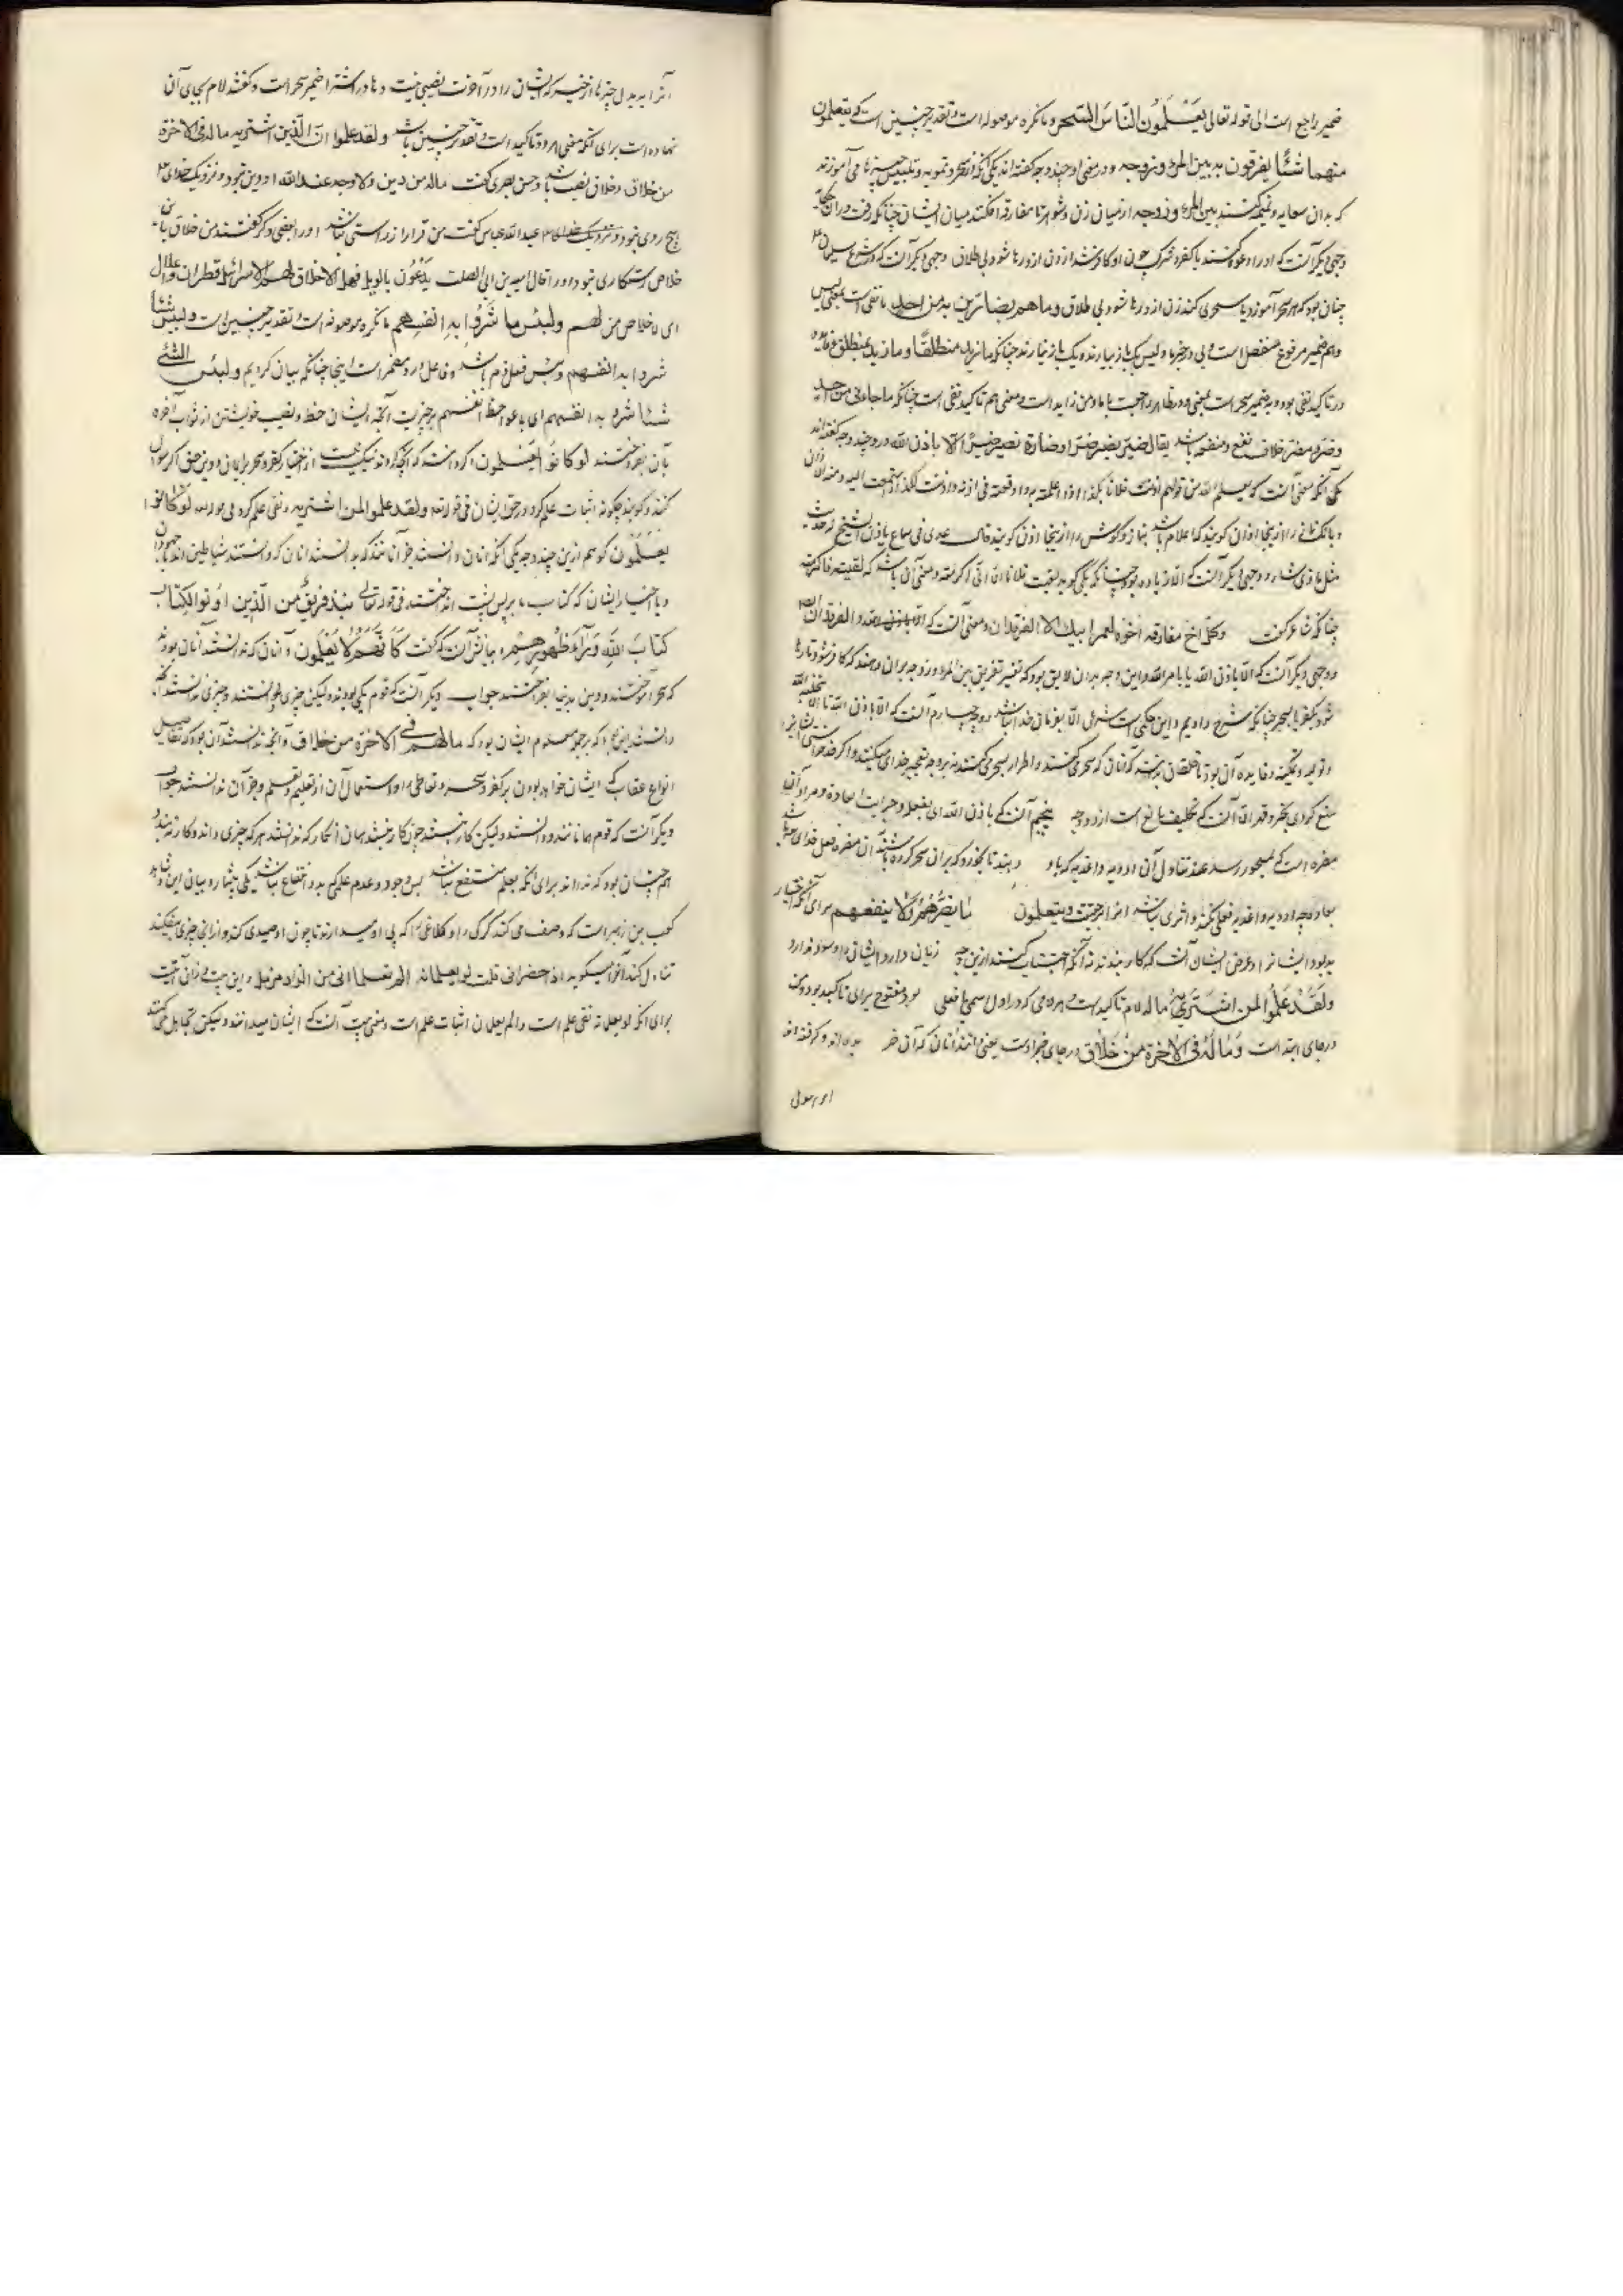 ضمیر راجع است الی قوله تعالی یعلمون الناس السحر و ما نکره موصوله است و تقدیر چنین است که یتعلمون
منهما شئا یفرقون به بین المرء و زوجه و در معنی او چند وجه گفته‌اند یکی آنکه از سحر و تمویه و تلبیس چیزها می‌آموزند
که بدان سعایه و نمیمه کنند بین المرء و زوجه از میان زن و شوهر تا مفارقه افکند میان ایشان چنانکه رفت در آن حکایت
وجهی دیگر آنست که او را دعوه کنند با کفر و شرک چون او کافر شد از زن او رها شود بی طلاق وجهی دیگر آنست که در شرع سلیمان
چنان بود که هر که سحر آموزد یا سحری کند زن از او رها شود بی طلاق و ما هم بضارین به من احد ما نفی است بمعنی لیس
و هم ضمیر مرفوع منفصل است و بی در خبر ما و لیس یک بار بیارند و یک بار نیارند چنانکه ما زید منطلقا و ما زید بمنطلق و فایده
در تاکید نفی بود و به ضمیر سحر است بمعنی و در ظاهر راجعست با ما و من زایده است و معنی هم تاکید نفی است چنانکه ما جاءنی من احد
و ضر و مضره خلاف نفع و منفعه باشد یقال ضره یضره ضرا و ضاره یضیره ضیرا الا باذن الله درو چند وجه گفته‌اند
یکی آنکه معنی آنست که بعلم الله من قولهم اذنت فلانا بکذا اذا اعلمته به و اوقعته فی اذنه و اذنت لکذا اذا استمعت الیه و منه الاذان
و بانک نماز را از اینجا اذان گویند که اعلام باشد بنماز و گوش را از اینجا اذن گویند قال عدی فی سماع یاذن الشیخ له و حدیث
مثل ماذی مشار و وجهی دیگر آنست که الا زیاده بود چنانکه یکی گوید لقیت فلانا الا انی اکرمته و معنی آن باشد که لقیته فاکرمته
چنانکه شاعر گفت و کل اخ مفارقه اخوه لعمر ابیک الا الفرقدان و معنی آنست که و الفرقدان
و وجهی دیگر آنست که الا باذن الله یا بامر الله و این وجه بدان لایق بود که تفسیر تفریق بین المرء و زوجه بر آن دهند که کافر شود تا رها
شود بکفر یا بسحر چنانکه شرح دادیم و این حکمی است شرعی الا بفرمان خدا نباشد و وجه چهارم آنست که الا باذن الله تا الا بتخلیه الله
و تمکینه و فایده آن بود تا خلقان بدانند که آنان که سحر می‌کنند و اضرار بسحر می‌کنند نه بر وجه تعجیز خدای میکنند و اگر خدا خواستی ایشانرا
منع کردی بجبر و قهر الا آنست که تکلیف مانع است از او وجه پنجم آنست که باذن الله ای بفعل و جری العاده و مراد آن
مضره است که بمسحور رسد عند تناول آنی ادویه و اغذیه که باو دهند تا بخورد که بر آن سحر کرده باشند آن مضره فعل خدای باشد
بعاده چه ادویه و اغذیه فعلی نکند و اثری نباشد آنرا بر حقیقت و یتعلمون ما یضرهم و لا ینفعهم برای آنکه اختیار
بد بود ایشانرا و غرض ایشان آنست که کار بندند نه آنکه اجتناب کنند از این وجه زیان دارد ایشانرا و سود ندارد
و لقد علموا لمن اشتریه ما له لام تاکید است همه می که در اول اسمی یا فعلی بود مفتوح برای تاکید بود و من
در جای ابتدا است و ما له فی الآخرة من خلاق در جای خبر اوست یعنی دانند آنان که آن خر بده‌اند و گرفته‌اند
آنرا به بدل چیزها از خیر که ایشان را در آخرت نصیبی نیست و ها در اشتراه ضمیر سحر است و گفته‌اند لام بجای آن
نهاده است برای آنکه معنی هر دو تاکید است و تقدیر چنین باشد و لقد علموا ان الذین اشتریه ما له فی الآخرة
من خلاق و خلاق نصیب باشد و حسن بصری گفت ما له من دین و لا وجه عند الله او را دین نبود و نزدیک خدای
هیچ روی نبود عبد الله عباس گفت من قرار از راستی نباشد او را بعضی دگر گفتند من خلاق یعنی
خلاص رستگاری نبود او را قال امیه بن ابی الصلت یدعون بالویل فیها لا خلاق لهم الا سرابیل قطران و اغلال
ای لا خلاص من لهم و لبئس ما شروا به انفسهم ما نکره موصوفه است و تقدیر چنین است و لبئس شئا
شروا به انفسهم و بئس فعل ذم باشد و فاعل او مضمر است اینجا چنانکه بیان کردیم و لبئس الشئ
شئا شروا به انفسهم ای باعوا حظ انفسهم بد چیزیست آنچه ایشان حظ و نصیب خویشتن از ثواب آخره
بآن بفروختند لو کانوا یعلمون اگر دانستندی که آنچه کردند نیک نیست از اختیار کفر و سحر بر ایمان و دین حق اگر سوال
کنند و گویند چگونه اثبات علم کرد در حق ایشان فی قوله و لقد علموا لمن اشتریه و نفی علم کرد فی قوله لو کانوا
یعلمون گوییم ازین چند وجه یکی آنکه آنان دانستند جز آنانند که ندانستند آنان که دانستند شیاطین‌اند
و یا احبار ایشان که کتاب ما پس پشت انداختند فی قوله تعالی نبذ فریق من الذین اوتوا الکتاب
کتاب الله وراء ظهورهم بیانش آن که گفت کانهم لا یعلمون و آنان که ندانستند آنان بودند
که سحر آموختند و دین بدنیا بفروختند جواب دیگر آنست که قوم یکی بودند ولیکن چیزی دانستند و چیزی ندانستند آنچه
دانستند این بود که بر جمله معلوم ایشان بود که ما لهم فی الآخرة من خلاق و آنچه ندانستند آن بود که تفاصیل
انواع عقاب که ایشان خواهد بودن بر کفر و سحر و تعاطی او و استعمال آن از تعلیم و تعلم و جز آن ندانستند جواب
دیگر آنست که قوم همانانند و دانستند ولیکن کار نبستند چون کار نبستند بمانند آن کار که ندانستند هر که چیزی داند و کار نبندد
همچنان بود که نداند برای آنکه بعلم منتفع نباشد پس وجود و عدم علمی که بدو انتفاع نباشد یکی باشد و بیانی این
کعب بن زهیر است که وصف می‌کند گرگی را و کلاغی را که پی او میدارند تا چون او صیدی کند و از آن چیزی بیفکند
تناول کند آنرا میگوید اذا حضرانی قلت لو یعلمانه الم تعلما انی من الزاد مرمل و این بیت در آن آیتست
برای آنکه لو یعلمانه نفی علم است و الم تعلما ان اثبات علم است و معنی بیت آنست که ایشان میدانند ولیکن تجاهل می‌کنند